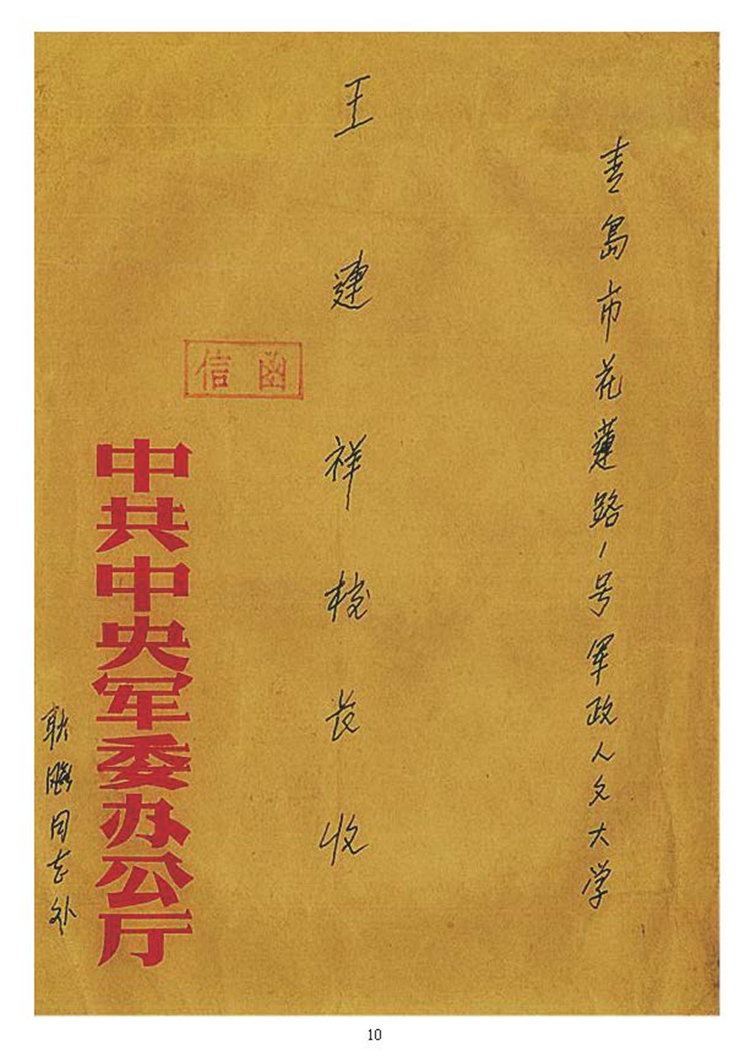 青島市花蓮路1号军政人文大学
王建祥校长收
信函
中共中央军委办公厅
耿飚同志处
10